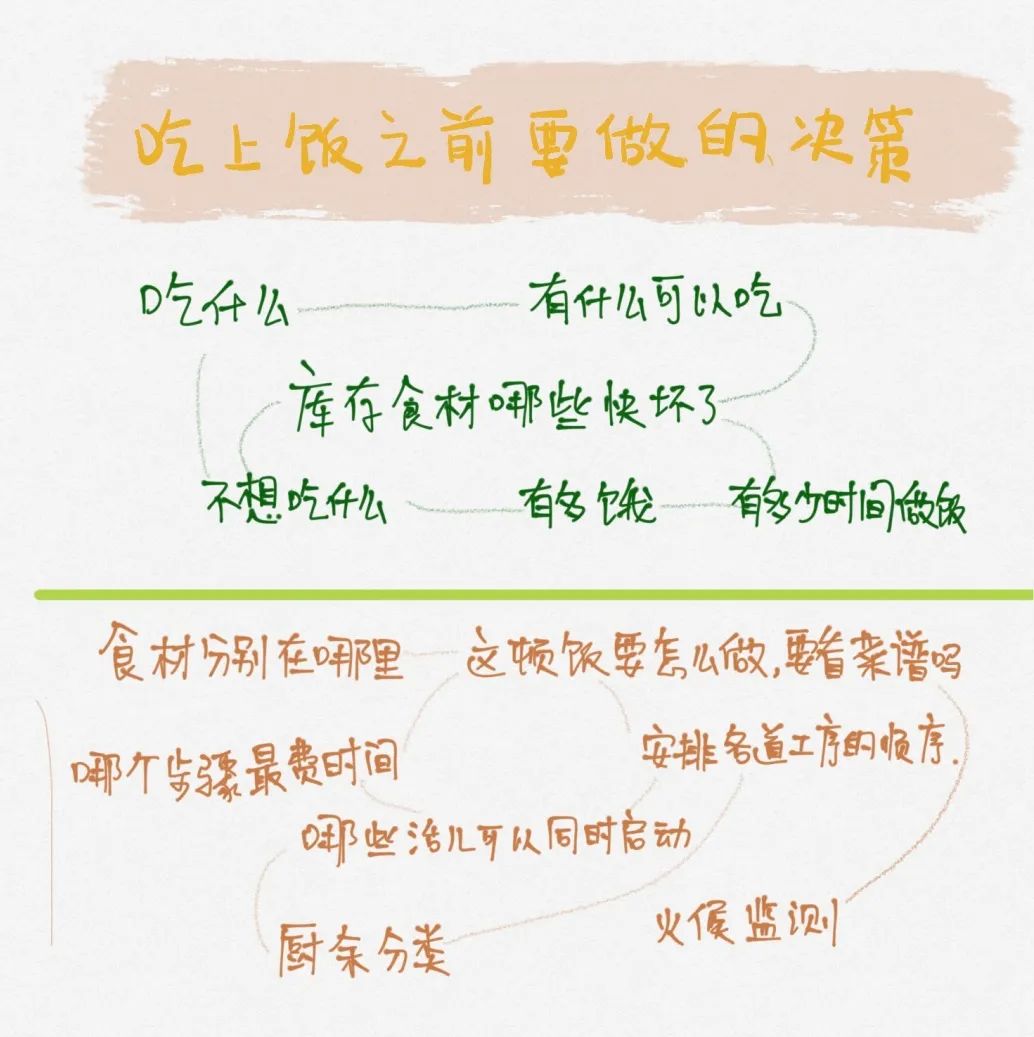 吃上饭之前要做的决策
吃什么 有什么可以吃
库存食材哪些快坏了
不想吃什么 有多饿 有多少时间做饭
食材分别在哪里 这顿饭要怎么做,要看菜谱吗
哪个步骤最费时间 安排各道工序的顺序.
哪些活儿可以同时启动
厨余分类 火候监测